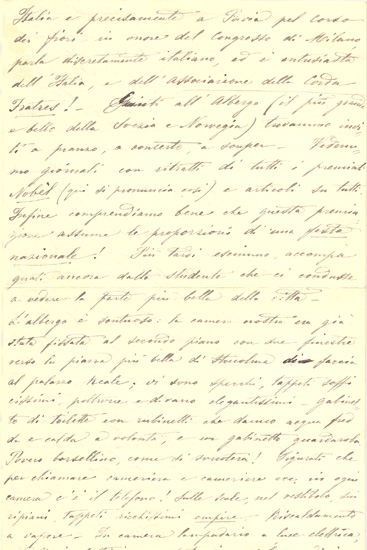 Italia e precisamente a Pavia pel corso
dei fiori in onore del congresso di Milano,
parla discretamente italiano, ed è entusiasta
dell'Italia, e dell'Associazione della Corda
Fratres! – Giunti all'Albergo (il più grande
e bello della Svezia e Norvegia) fummo invi-
ti a pranzo, a concerto, a souper. – Vedem-
mo giornali con ritratti di tutti i premiati
Nobèl (qui si pronuncia così) e articoli su tutti.
Infine comprendiamo bene che questa premia-
zione assume le proporzioni di una festa
nazionale! Più tardi uscimmo, accompa-
gnati ancora dallo studente che ci condusse
a vedere la parte più bella della città –
L'albergo è sontuoso: la camera nostra era già
stata fissata al secondo piano con due finestre
verso la piazza più bella di Stocolma di faccia
al palazzo reale; vi sono specchi, tappeti soffi
cissimi, poltrone e divano elegantissimi – gabinet-
to di toilette con rubinetti che danno acqua fred
da e calda a volontà, e un gabinetto guardaroba
Povero borsellino, come si vuoterà! Figurati che
per chiamare cameriera e cameriere ecc. in ogni
camera c'è il telefono! Sulle scale, nel vestibolo, sui
ripiani, tappeti ricchissimi Riscaldamento
a vapore – In camera lampadario a luce elettrica,